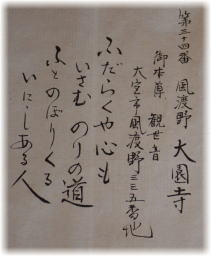 第三十四番 風渡野 大圓寺
御本尊 観世音
大宮市風渡野三三五番地
ふだらくや心も
いさむ のりの道
ふとのぼりくる
いにしある人